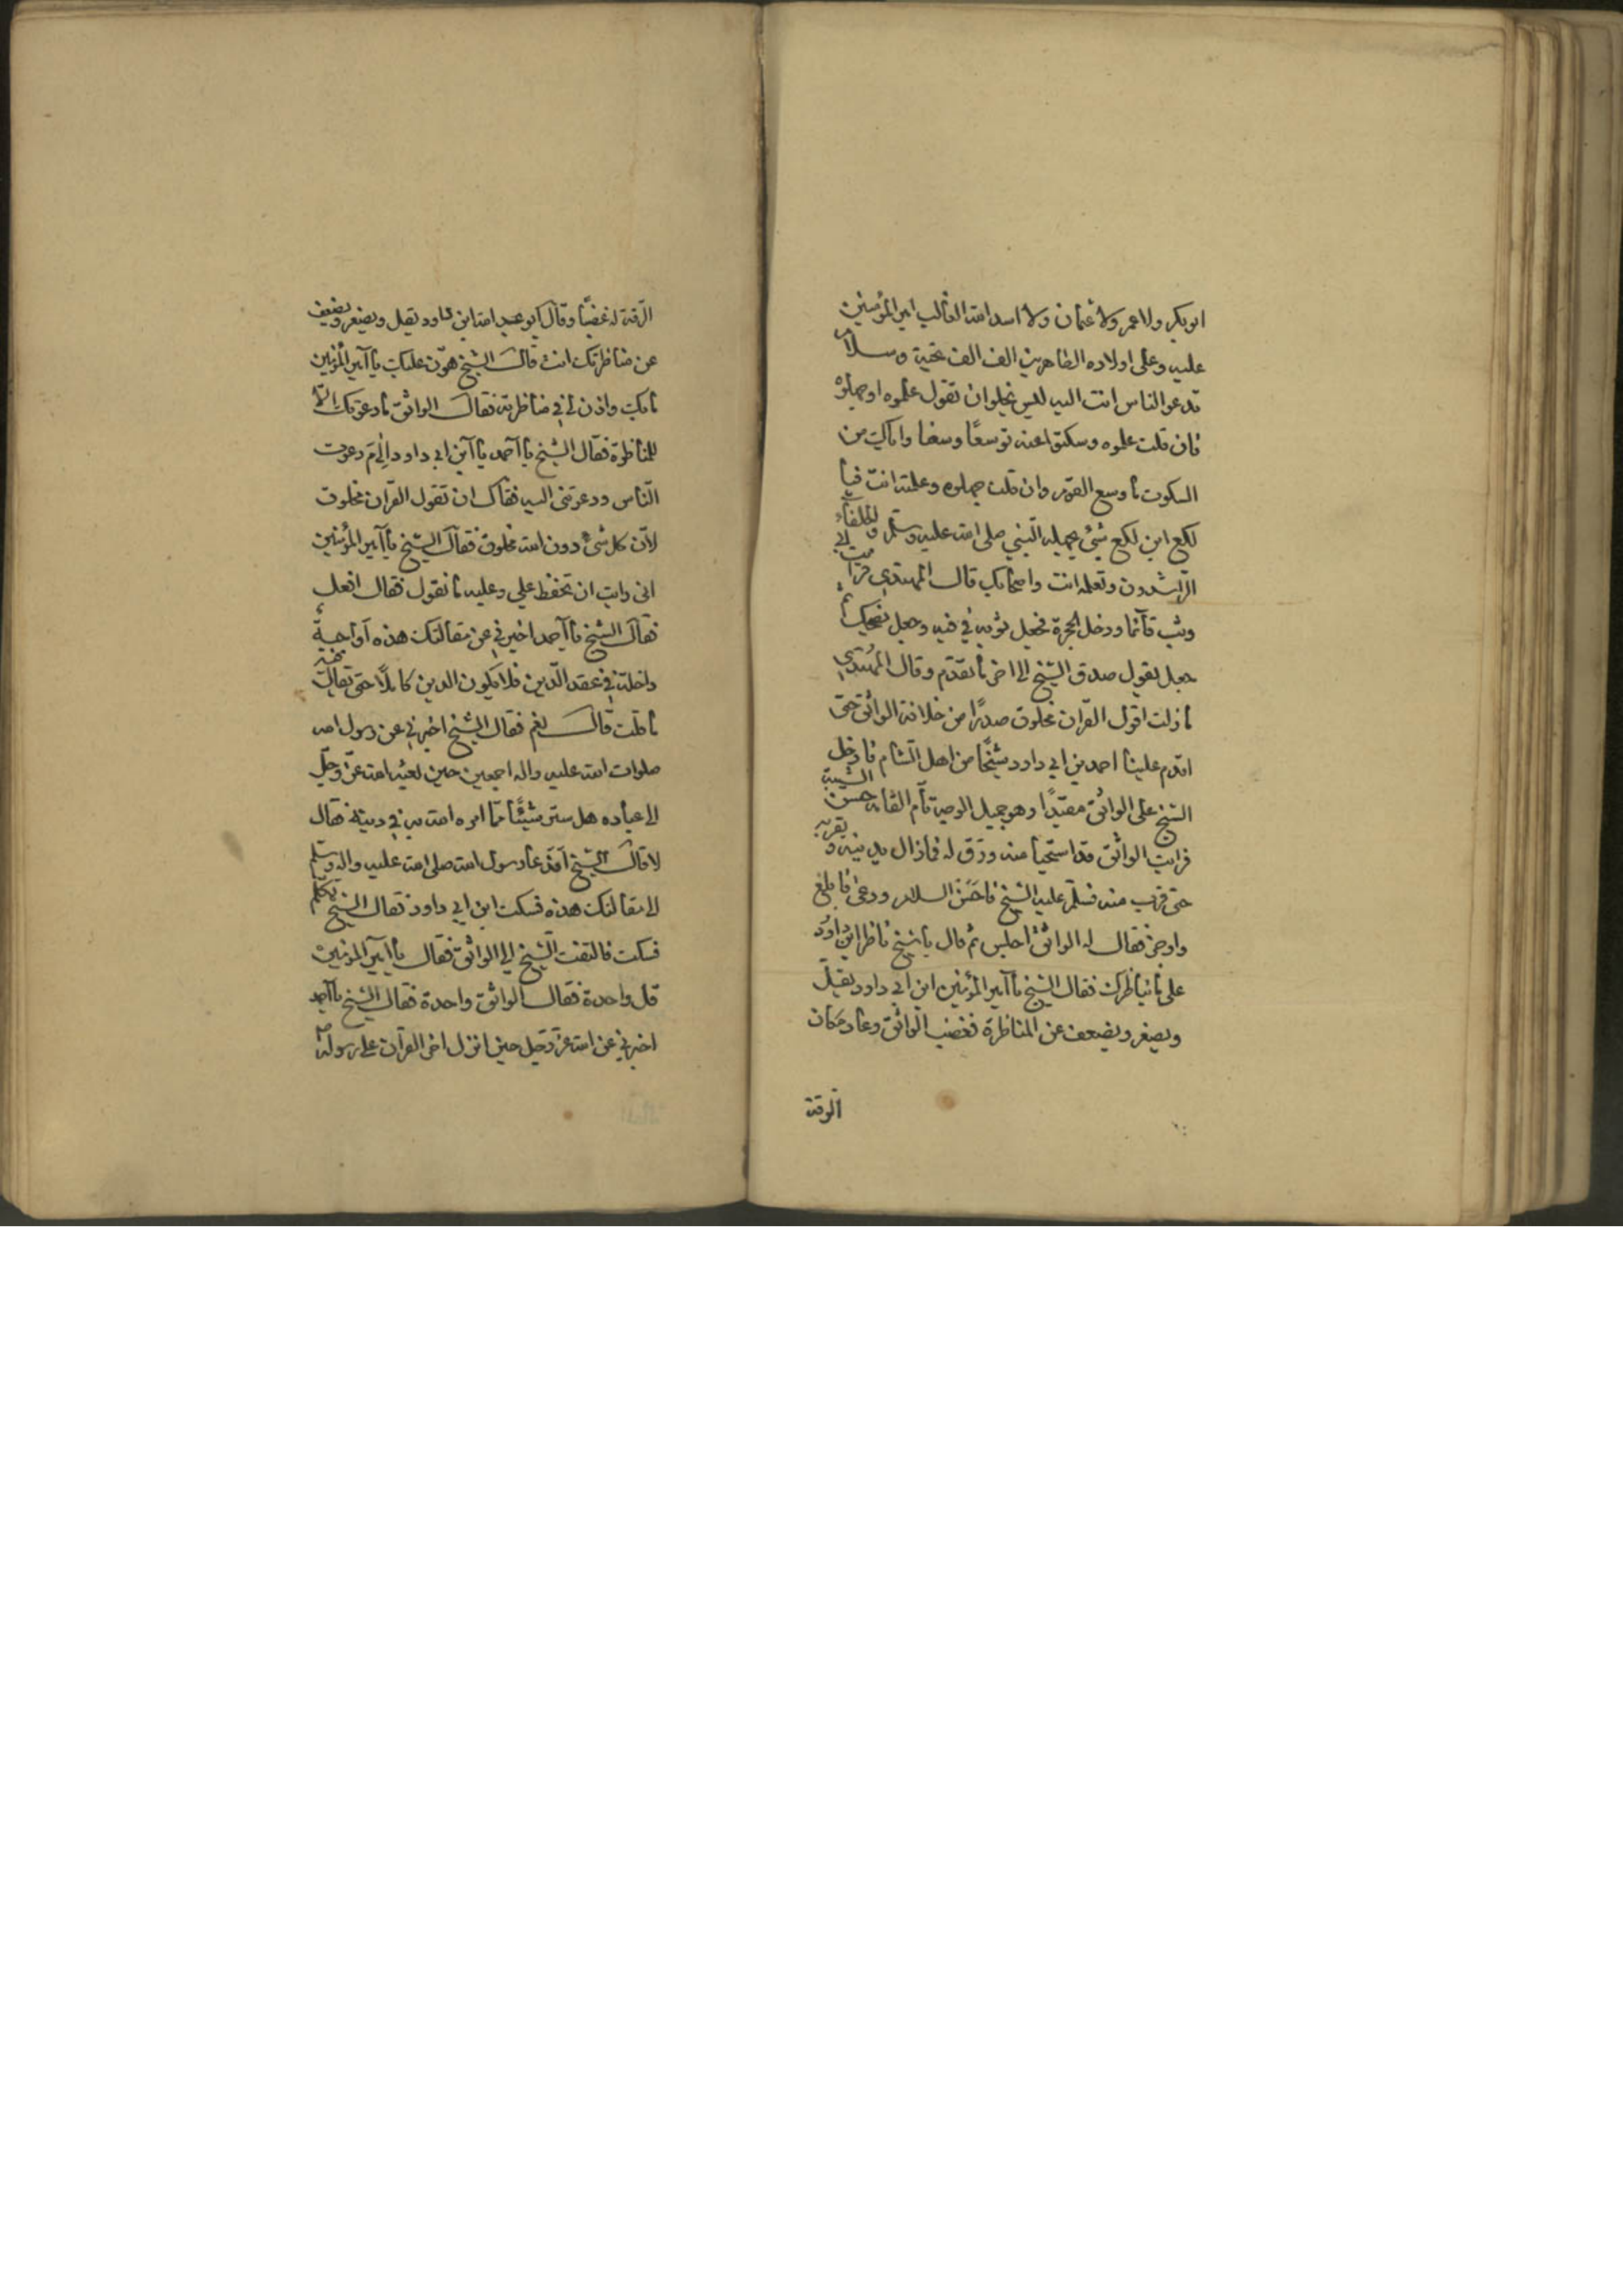 ابوبكر ولا عمر ولا عثمان ولا اسد الله الغالب امير المؤمنين
عليه وعلى اولاده الطاهرين الف الف تحية وسلام
تدعو الناس انت اليه ليس يخلو ان تقول علموه او جهلوه
فان قلت علموه وسكتوا عنه توسعًا وسعنا واياك من
السكوت ما وسع القوم وان قلت جهلوه وعلمته انت فيا
لكع ابن لكع شيئ يجهله النبي صلى الله عليه وسلم والخلفاء
الراشدون وتعلمه انت واصحابك قال المهتدي فرايت ابي
وثب قائما ودخل الحجرة فجعل ثوبه في فيه وجعل يضحك ثم
جعل يقول صدق الشيخ الى اخر ما تقدم وقال المهتدي
ما زلت اقول القران مخلوق صدرًا من خلافة الواثق حتى
اقدم علينا احمد بن ابي داود شيخًا من اهل الشام فادخل
الشيخ على الواثق مقيدًا وهو جميل الوجه تام القامة حسن الشيبة
فرايت الواثق قد استحيا منه ورق له فما زال يدنيه ويقربه
حتى قرب منه فسلم عليه الشيخ فاحسن السلام ودعى فابلغ
واوجز فقال له الواثق اجلس ثم قال يا شيخ ناظر ابن داود
على ما يناظرك فقال الشيخ يا امير المؤمنين ابن ابي داود يقل
ويصغر ويضعف عن المناظرة فغضب الواثق وعاد مكان
الرقة
الرقة له غضبًا وقال ابو عبد الله ابن داود يقل ويصغر ويضعف
عن مناظرتك انت قال الشيخ هون عليك يا امير المؤمنين
ما بك واذن لي في مناظرته فقال الواثق ما دعوتك الا
للمناظرة فقال الشيخ يا احمد يا ابن ابي داود الى م دعوت
الناس ودعوتني اليه فقال ان تقول القران مخلوق
لان كل شيء دون الله مخلوق فقال الشيخ يا امير المؤمنين
انى رايت ان تحفظ علي وعليه ما نقول فقال افعل
فقال الشيخ يا احمد اخبرني عن مقالتك هذه أواجبة
داخلة في عقد الدين فلا يكون الدين كاملًا حتى يقال فيه
ما قلت قال نعم فقال الشيخ اخبرني عن رسول الله
صلوات الله عليه واله اجمعين حين بعثه الله عز وجل
الى عباده هل ستر شيئًا مما امره الله به في دينه فقال
لا قال الشيخ أفدعا رسول الله صلى الله عليه واله وسلم
الى مقالتك هذه فسكت ابن ابي داود فقال الشيخ تكلم
فسكت فالتفت الشيخ الى الواثق فقال يا امير المؤمنين
قل واحدة فقال الواثق واحدة فقال الشيخ يا احمد
اخبرني عن الله عز وجل حين انزل اخر القرآن على رسوله